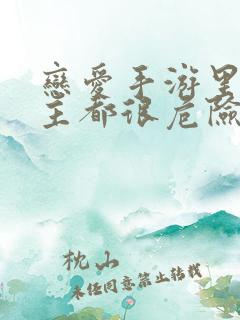 戀愛手游里
主都很危險
枕山
未經同意禁止轉載